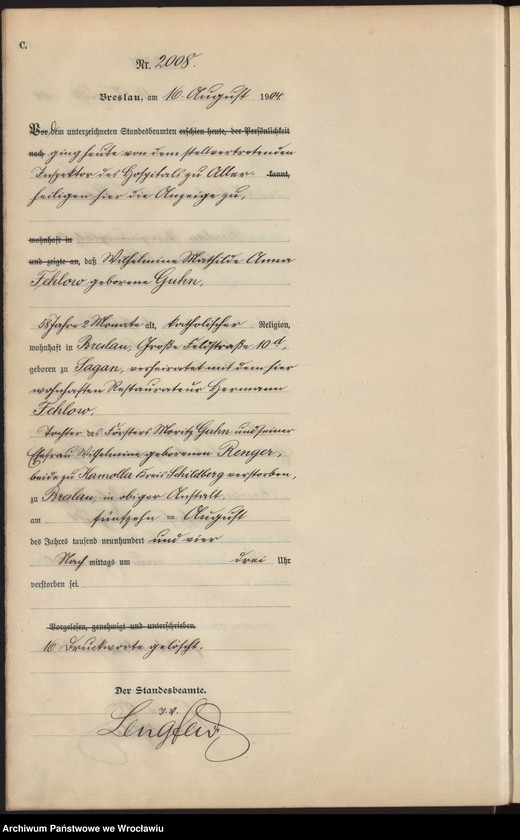 C.
Nr. 2008.
Breslau, am 16. August 1904.
Vor dem unterzeichneten Standesbeamten erschien heute, der Persönlichkeit
nach ging heute von dem stellvertretenden
Inspektor des Hospitals zu Aller- kannt,
heiligen hier die Anzeige zu,
wohnhaft in
und zeigte an, daß Wilhelmine Mathilde Anna
Fehlow geborene Guhn,
58 Jahre 2 Monate alt, katholischer Religion,
wohnhaft in Breslau, Große Feldstraße 10d,
geboren zu Sagan, verheiratet mit dem hier
wohnhaften Restaurateur Hermann
Fehlow,
Tochter des Försters Moritz Guhn und seiner
Ehefrau Wilhelmine geborenen Renger,
beide zu Kamolla Kreis Schildberg verstorben,
zu Breslau, in obiger Anstalt
am fünfzehn = August
des Jahres tausend neunhundert und vier
Nach mittags um drei Uhr
verstorben sei.
Vorgelesen, genehmigt und unterschrieben.
16 Druckworte gelöscht.
Der Standesbeamte.
I. V.
Lengfeld
Archiwum Państwowe we Wrocławiu